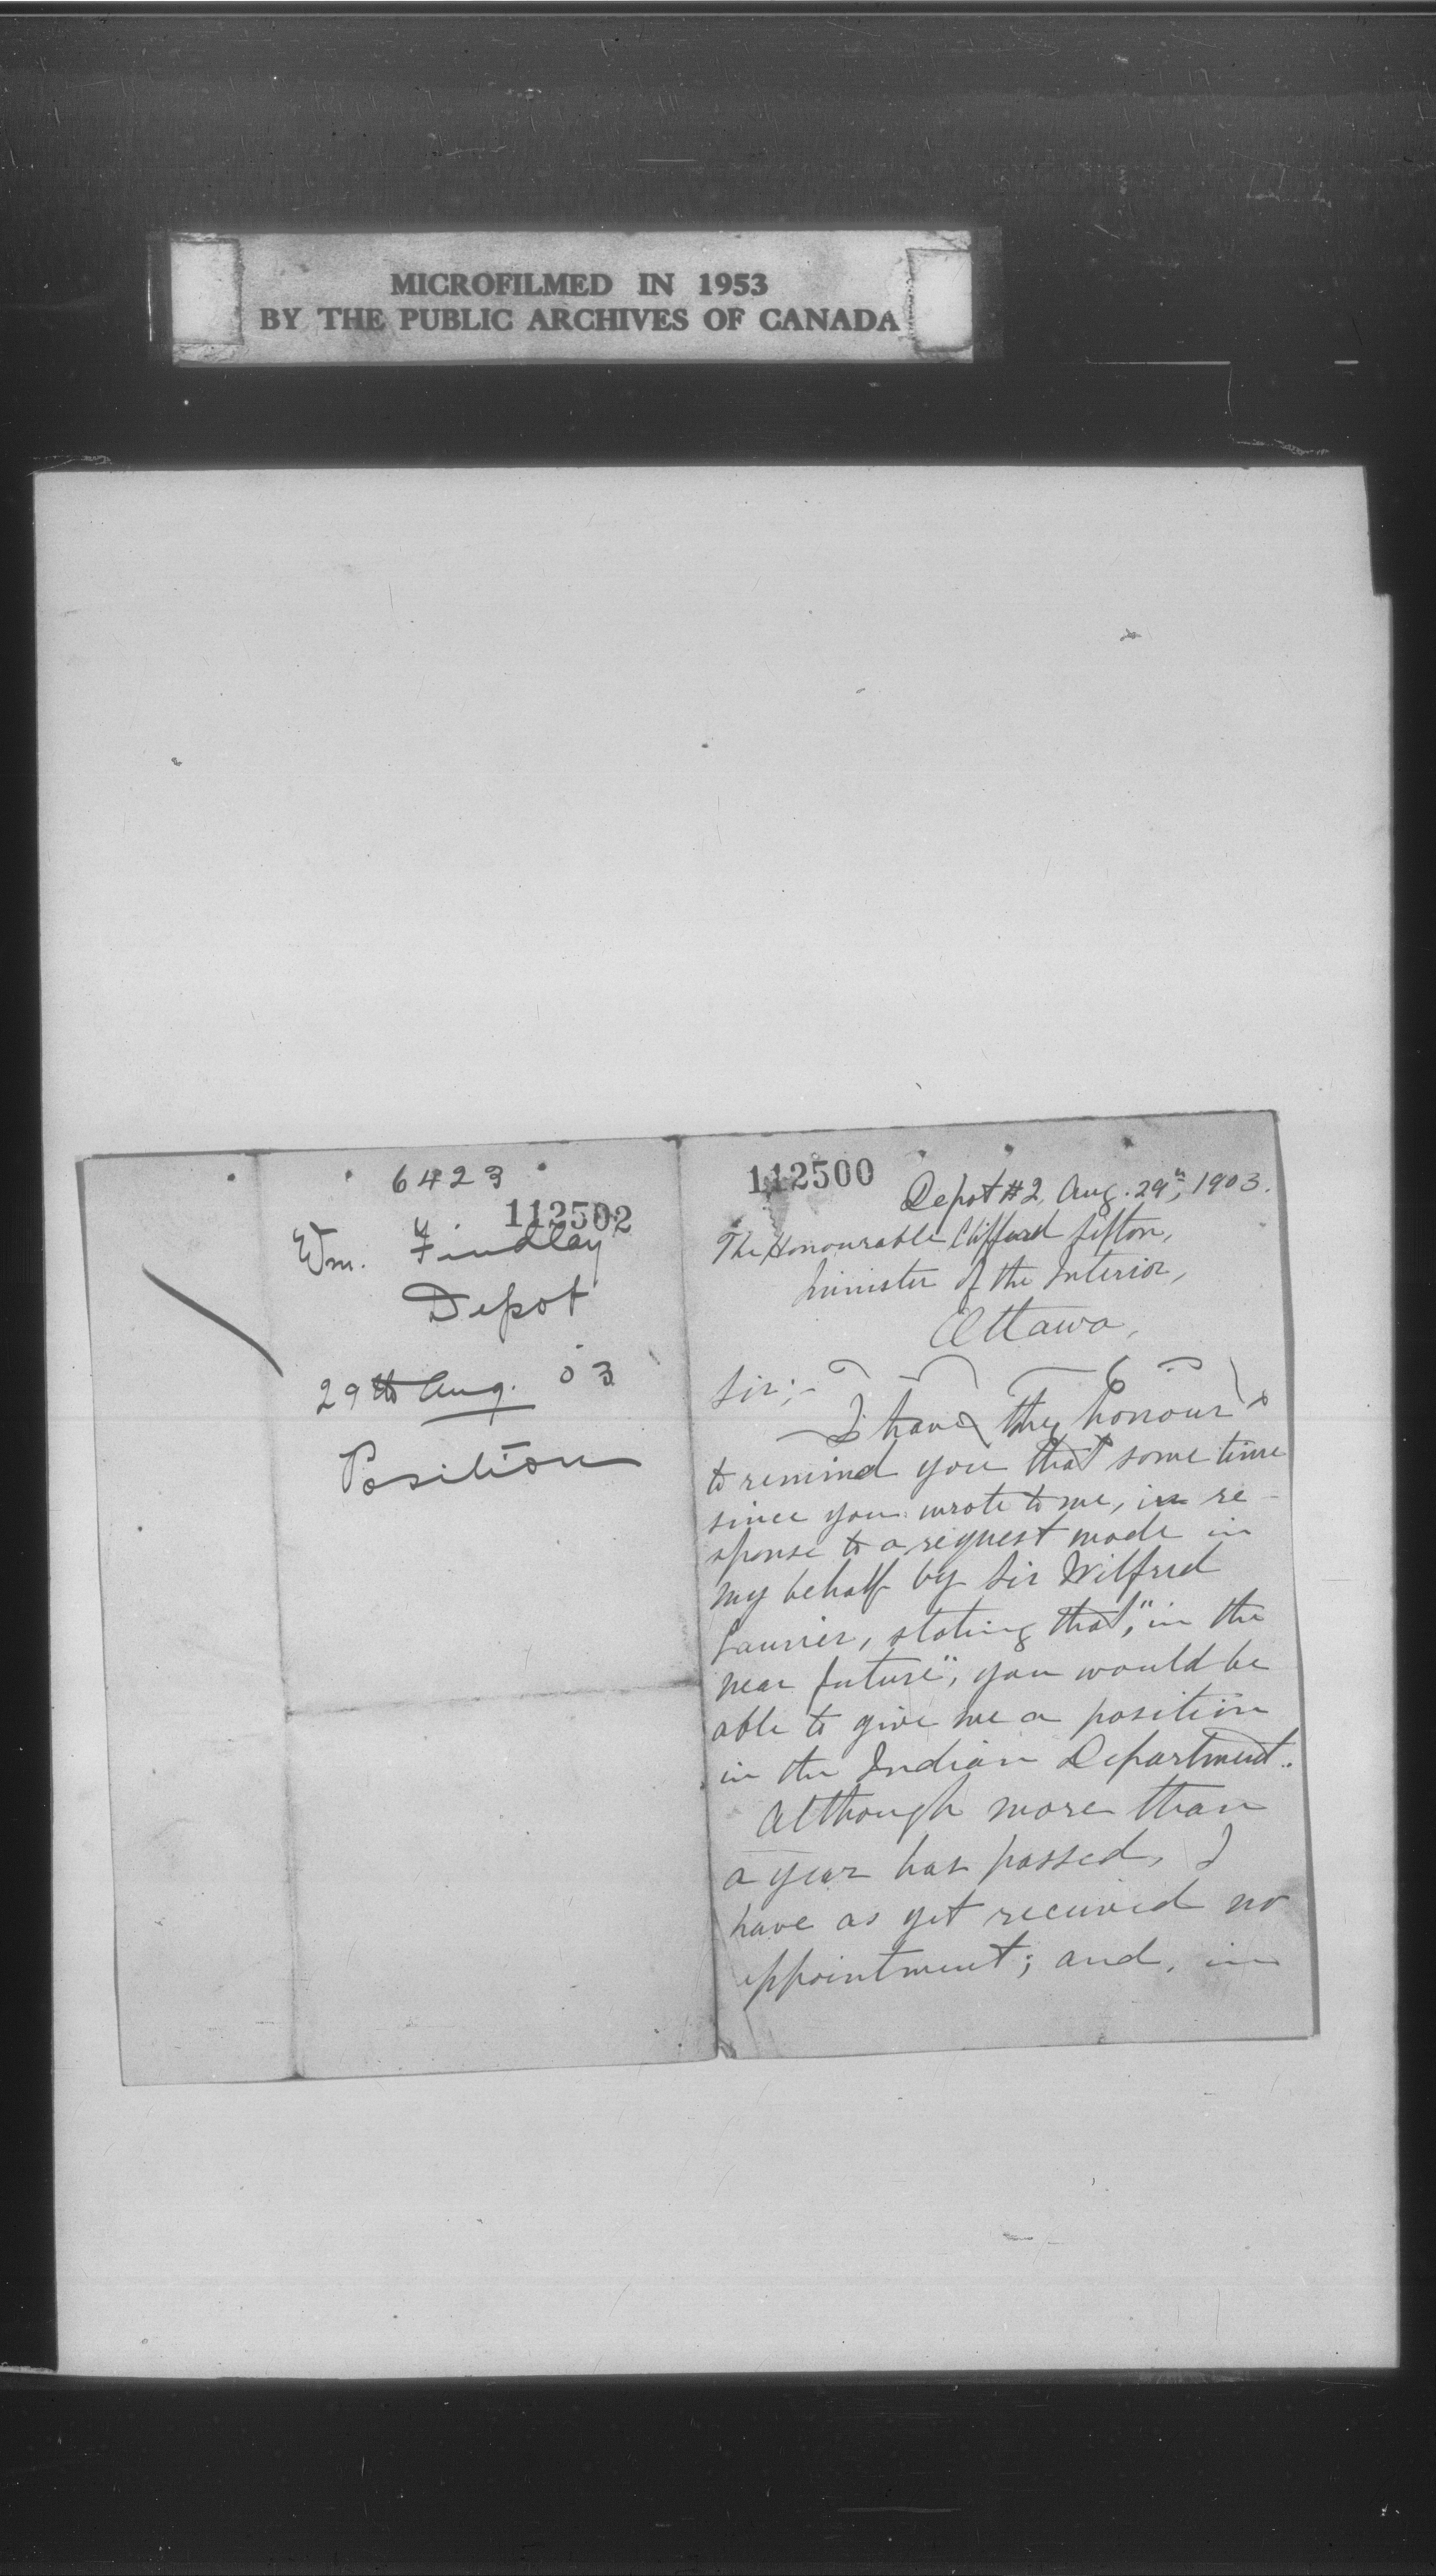 MICROFILMED IN 1953
BY THE PUBLIC ARCHIVES OF CANADA
6423
112502
Wm. Findlay
Depot
29th Aug. 03
Position
112500
Depot #2, Aug. 29th, 1903.
The Honourable Clifford Sifton,
Minister of the Interior,
Ottawa,
Sir;-
I have the honour
to remind you that some time
since you wrote to me, in re-
sponse to a request made in
my behalf by Sir Wilfrid
Laurier, stating that, "in the
near future", you would be
able to give me a position
in the Indian Department.
Although more than
a year has passed, I
have as yet received no
appointment; and, in